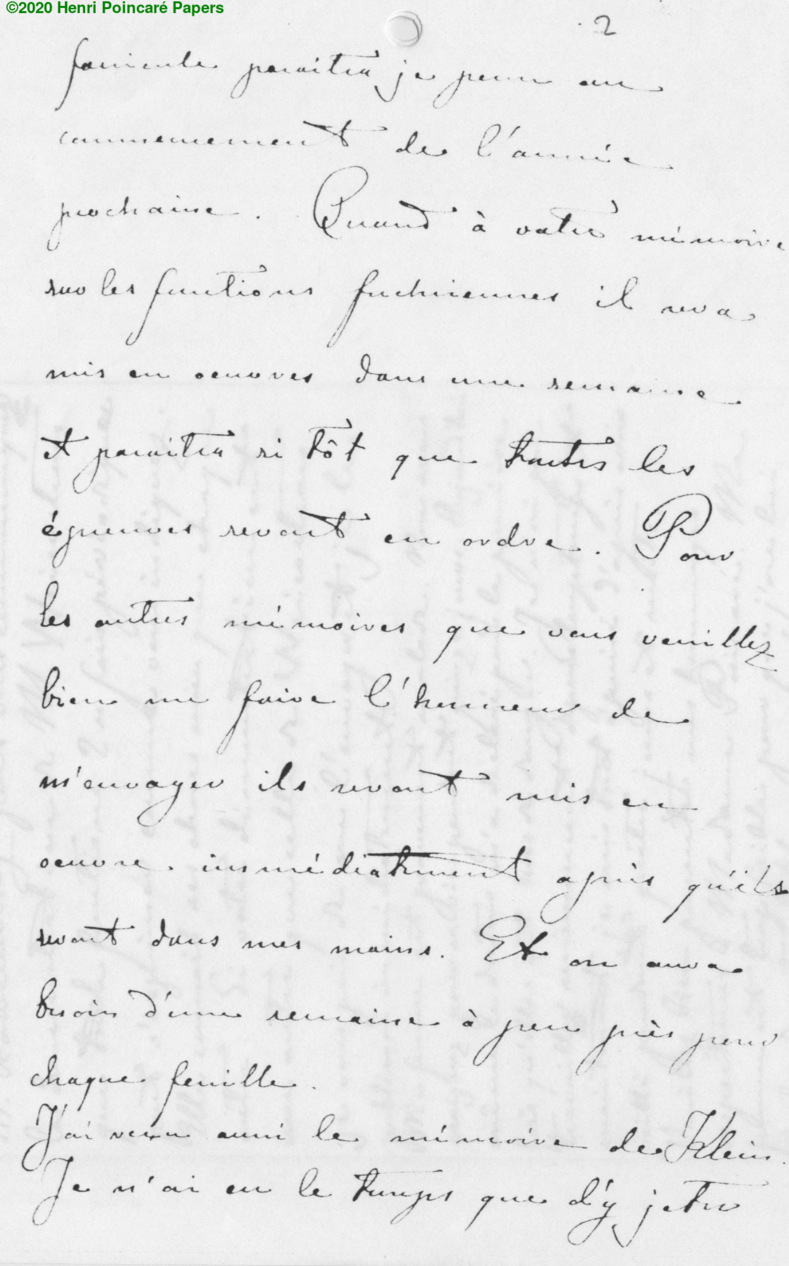 ©2020 Henri Poincaré Papers
2
fascicule paraitra, je pense au
commencement de l'année
prochaine. Quand à votre mémoire
sur les functions fuchsiennes il sera
mis en oeuvres dans une semaine
et paraitra si tôt que toutes les
épreuves seront en ordre. Pour
les autres mémoires que vous veuillez
bien me faire l'honneur de
m'envoyer ils seront mis en
oeuvre immédiatement après qu'ils
seront dans mes mains. Et on aura
besoin d'une semaine à peu près pour
chaque feuille.
J'ai reçu aussi le mémoire de Klein.
Je n'ai eu le temps que d'y jeter